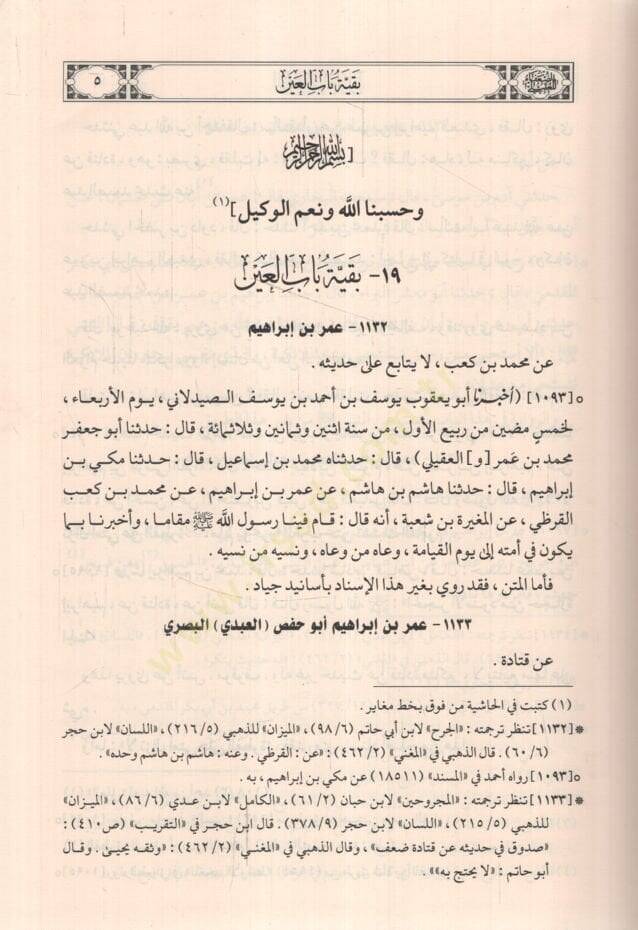 بقية باب العين
٥
[بسم الله الرحمن الرحيم
وحسبنا الله ونعم الوكيل](١)
١٩- بقية باب العين
١١٣٢- عمر بن إبراهيم
عن محمد بن كعب، لا يتابع على حديثه.
٥[١٠٩٣] (أخبرنا أبو يعقوب يوسف بن أحمد بن يوسف الصيدلاني، يوم الأربعاء،
لخمسٍ مضين من ربيع الأول، من سنة اثنين وثمانين وثلاثمائة، قال: حدثنا أبو جعفر
محمد بن عَمر [و] العقيلي)، قال: حدثناه محمد بن إسماعيل، قال: حدثنا مكي بن
إبراهيم، قال: حدثنا هاشم بن هاشم، عن عمر بن إبراهيم، عن محمد بن كعب
القرظي، عن المغيرة بن شعبة، أنه قال: قام فينا رسول الله ﷺ مقاما، وأخبرنا بما
يكون في أمته إلى يوم القيامة، وعاه من وعاه، ونسيه من نسيه.
فأما المتن، فقد روي بغير هذا الإسناد بأسانيد جياد.
١١٣٣- عمر بن إبراهيم أبو حفص (العبدي) البصري
عن قتادة.
(١) كتبت في الحاشية من فوق بخط مغاير.
*[١١٣٢] تنظر ترجمته: «الجرح» لابن أبي حاتم (٩٨/٦)، «الميزان» للذهبي (٢١٦/٥)، «اللسان» لابن حجر
(٦٠/٦). قال الذهبي في «المغني» (٤٦٢/٢): «عن: القرظي. وعنه: هاشم بن هاشم وحده».
٥[١٠٩٣] رواه أحمد في «المسند» (١٨٥١١) عن مكي بن إبراهيم، به.
*[١١٣٣] تنظر ترجمته: «المجروحين» لابن حبان (٦١/٢)، «الكامل» لابن عدي (٨٦/٦)، «الميزان»
للذهبي (٢١٥/٥)، «اللسان» لابن حجر (٣٧٨/٩). قال ابن حجر في «التقريب» (ص٤١٠):
«صدوق في حديثه عن قتادة ضعف»، وقال الذهبي في «المغني» (٤٦٢/٢): «وثقه يحيى. وقال
أبو حاتم: «لا يحتج به»».